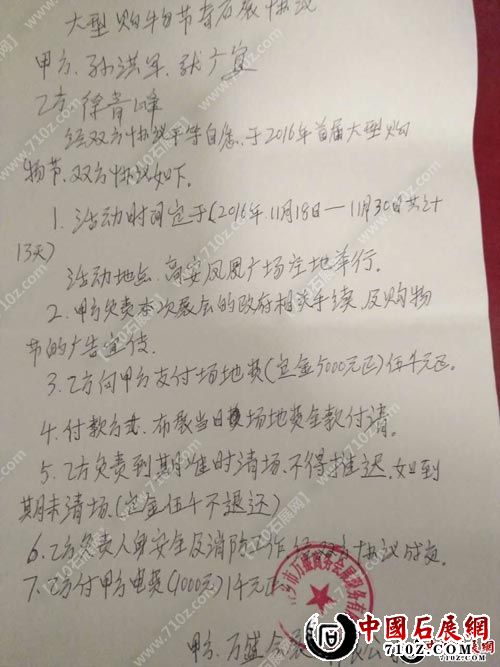 大型购物节奇石展协议
甲方、孙洪军、张广宜
乙方 徐青峰
经双方协议平等自愿、于2016年首届大型购
物节、双方协议如下。
1. 活动时间定于(2016年11月18日—11月30日共计
13天)
活动地点、高安凤凰广场空地举行。
2. 甲方负责本次展会的政府相关手续、及购物
节的广告宣传。
3. 乙方向甲方支付场地费(定金5000元正)伍千元正。
4. 付款方式、布展当日 场地费全款付清。
5. 乙方负责到期准时清场、不得推迟、如到
期未清场、(定金伍千不退还)
6. 乙方负责人身安全及消防工作 双方协议
7. 乙方付甲方电费(1000元)1千元正
甲方、万盛会展
市万盛商务会展服务有
中國石展网
7102.COM
www.710z.com